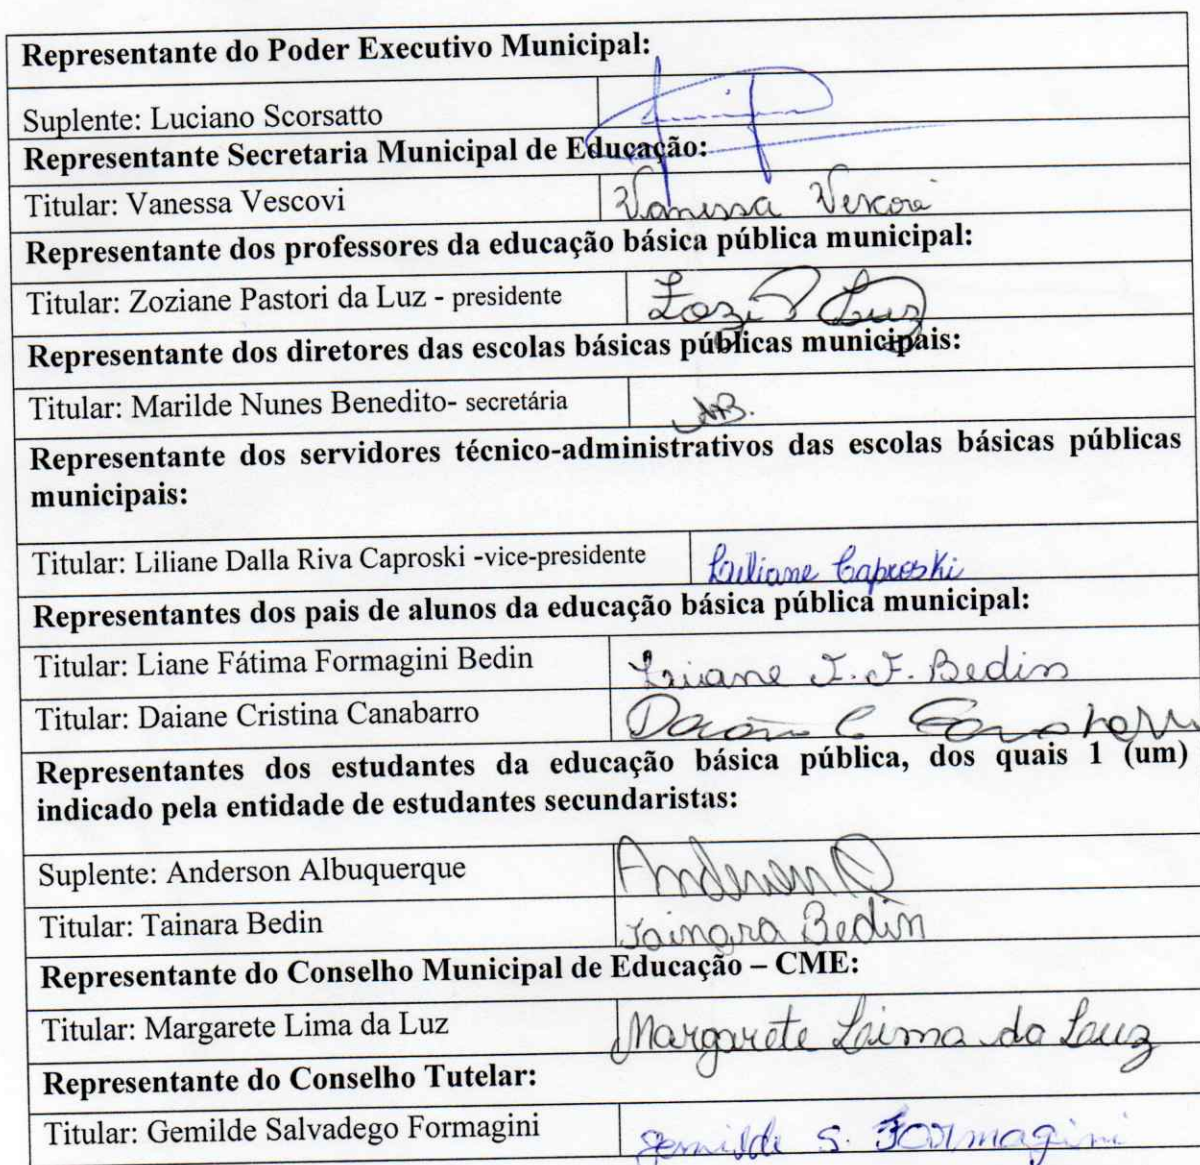 Representante do Poder Executivo Municipal:
Suplente: Luciano Scorsatto
Representante Secretaria Municipal de Educação:
Titular: Vanessa Vescovi Vanessa Vescovi
Representante dos professores da educação básica pública municipal:
Titular: Zoziane Pastori da Luz - presidente Zozi P Luz
Representante dos diretores das escolas básicas públicas municipais:
Titular: Marilde Nunes Benedito- secretária
Representante dos servidores técnico-administrativos das escolas básicas públicas
municipais:
Titular: Liliane Dalla Riva Caproski -vice-presidente Liliane Caproski
Representantes dos pais de alunos da educação básica pública municipal:
Titular: Liane Fátima Formagini Bedin Liane F. F. Bedin
Titular: Daiane Cristina Canabarro
Representantes dos estudantes da educação básica pública, dos quais 1 (um)
indicado pela entidade de estudantes secundaristas:
Suplente: Anderson Albuquerque Anderson
Titular: Tainara Bedin Tainara Bedin
Representante do Conselho Municipal de Educação – CME:
Titular: Margarete Lima da Luz Margarete Lima da Luz
Representante do Conselho Tutelar:
Titular: Gemilde Salvadego Formagini Gemilde S. Formagini